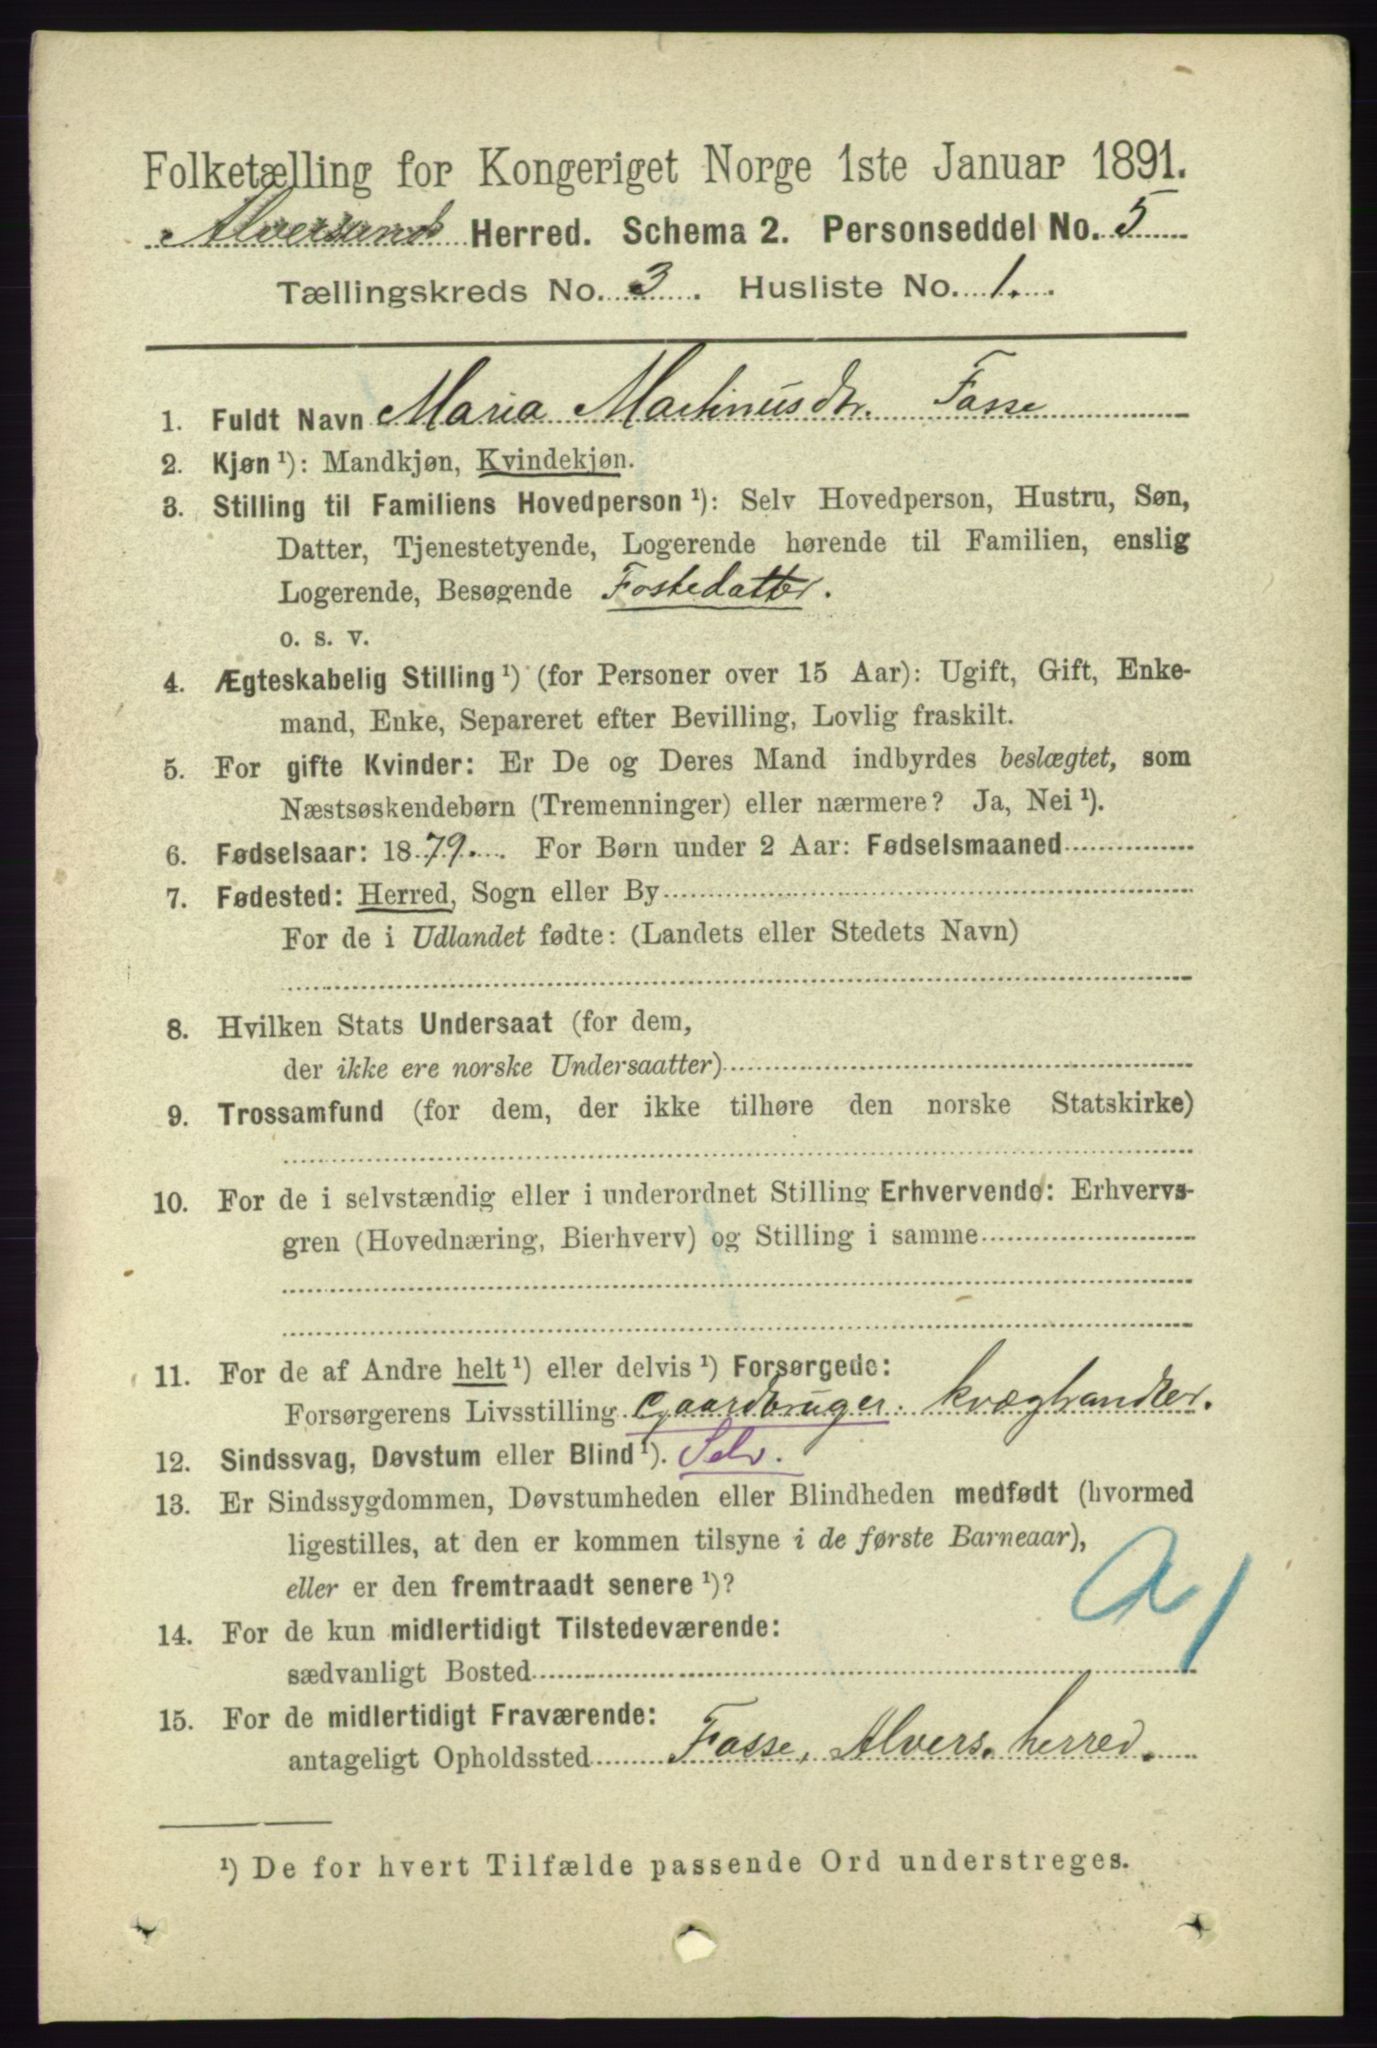 Folketælling for Kongeriget Norge 1ste Januar 1891.
Alversunds Herred. Schema 2. Personseddel No. 5
Tællingskreds No. 3. Husliste No. 1.
1. Fuldt Navn Maria Martinusdtr. Fosse
2. Kjøn ¹): Mandkjøn, Kvindekjøn.
3. Stilling til Familiens Hovedperson ¹): Selv Hovedperson, Hustru, Søn,
Datter, Tjenestetyende, Logerende hørende til Familien, enslig
Logerende, Besøgende Fostedatter.
o. s. v.
4. Ægteskabelig Stilling ¹) (for Personer over 15 Aar): Ugift, Gift, Enke-
mand, Enke, Separeret efter Bevilling, Lovlig fraskilt.
5. For gifte Kvinder: Er De og Deres Mand indbyrdes beslægtet, som
Næstsøskendebørn (Tremenninger) eller nærmere? Ja, Nei ¹).
6. Fødselsaar: 1879. For Børn under 2 Aar: Fødselsmaaned
7. Fødested: Herred, Sogn eller By
For de i Udlandet fødte: (Landets eller Stedets Navn)
8. Hvilken Stats Undersaat (for dem,
der ikke ere norske Undersaatter)
9. Trossamfund (for dem, der ikke tilhøre den norske Statskirke)
10. For de i selvstændig eller i underordnet Stilling Erhvervende: Erhvervs-
gren (Hovednæring, Bierhverv) og Stilling i samme
11. For de af Andre helt ¹) eller delvis ¹) Forsørgede:
Forsørgerens Livsstilling Gaardbruger. kvæghandler.
12. Sindssvag, Døvstum eller Blind ¹). Selv.
13. Er Sindssygdommen, Døvstumheden eller Blindheden medfødt (hvormed
ligestilles, at den er kommen tilsyne i de første Barneaar),
eller er den fremtraadt senere ¹)?
14. For de kun midlertidigt Tilstedeværende:
sædvanligt Bosted
15. For de midlertidigt Fraværende:
antageligt Opholdssted Fosse, Alvers. herred.
¹) De for hvert Tilfælde passende Ord understreges.